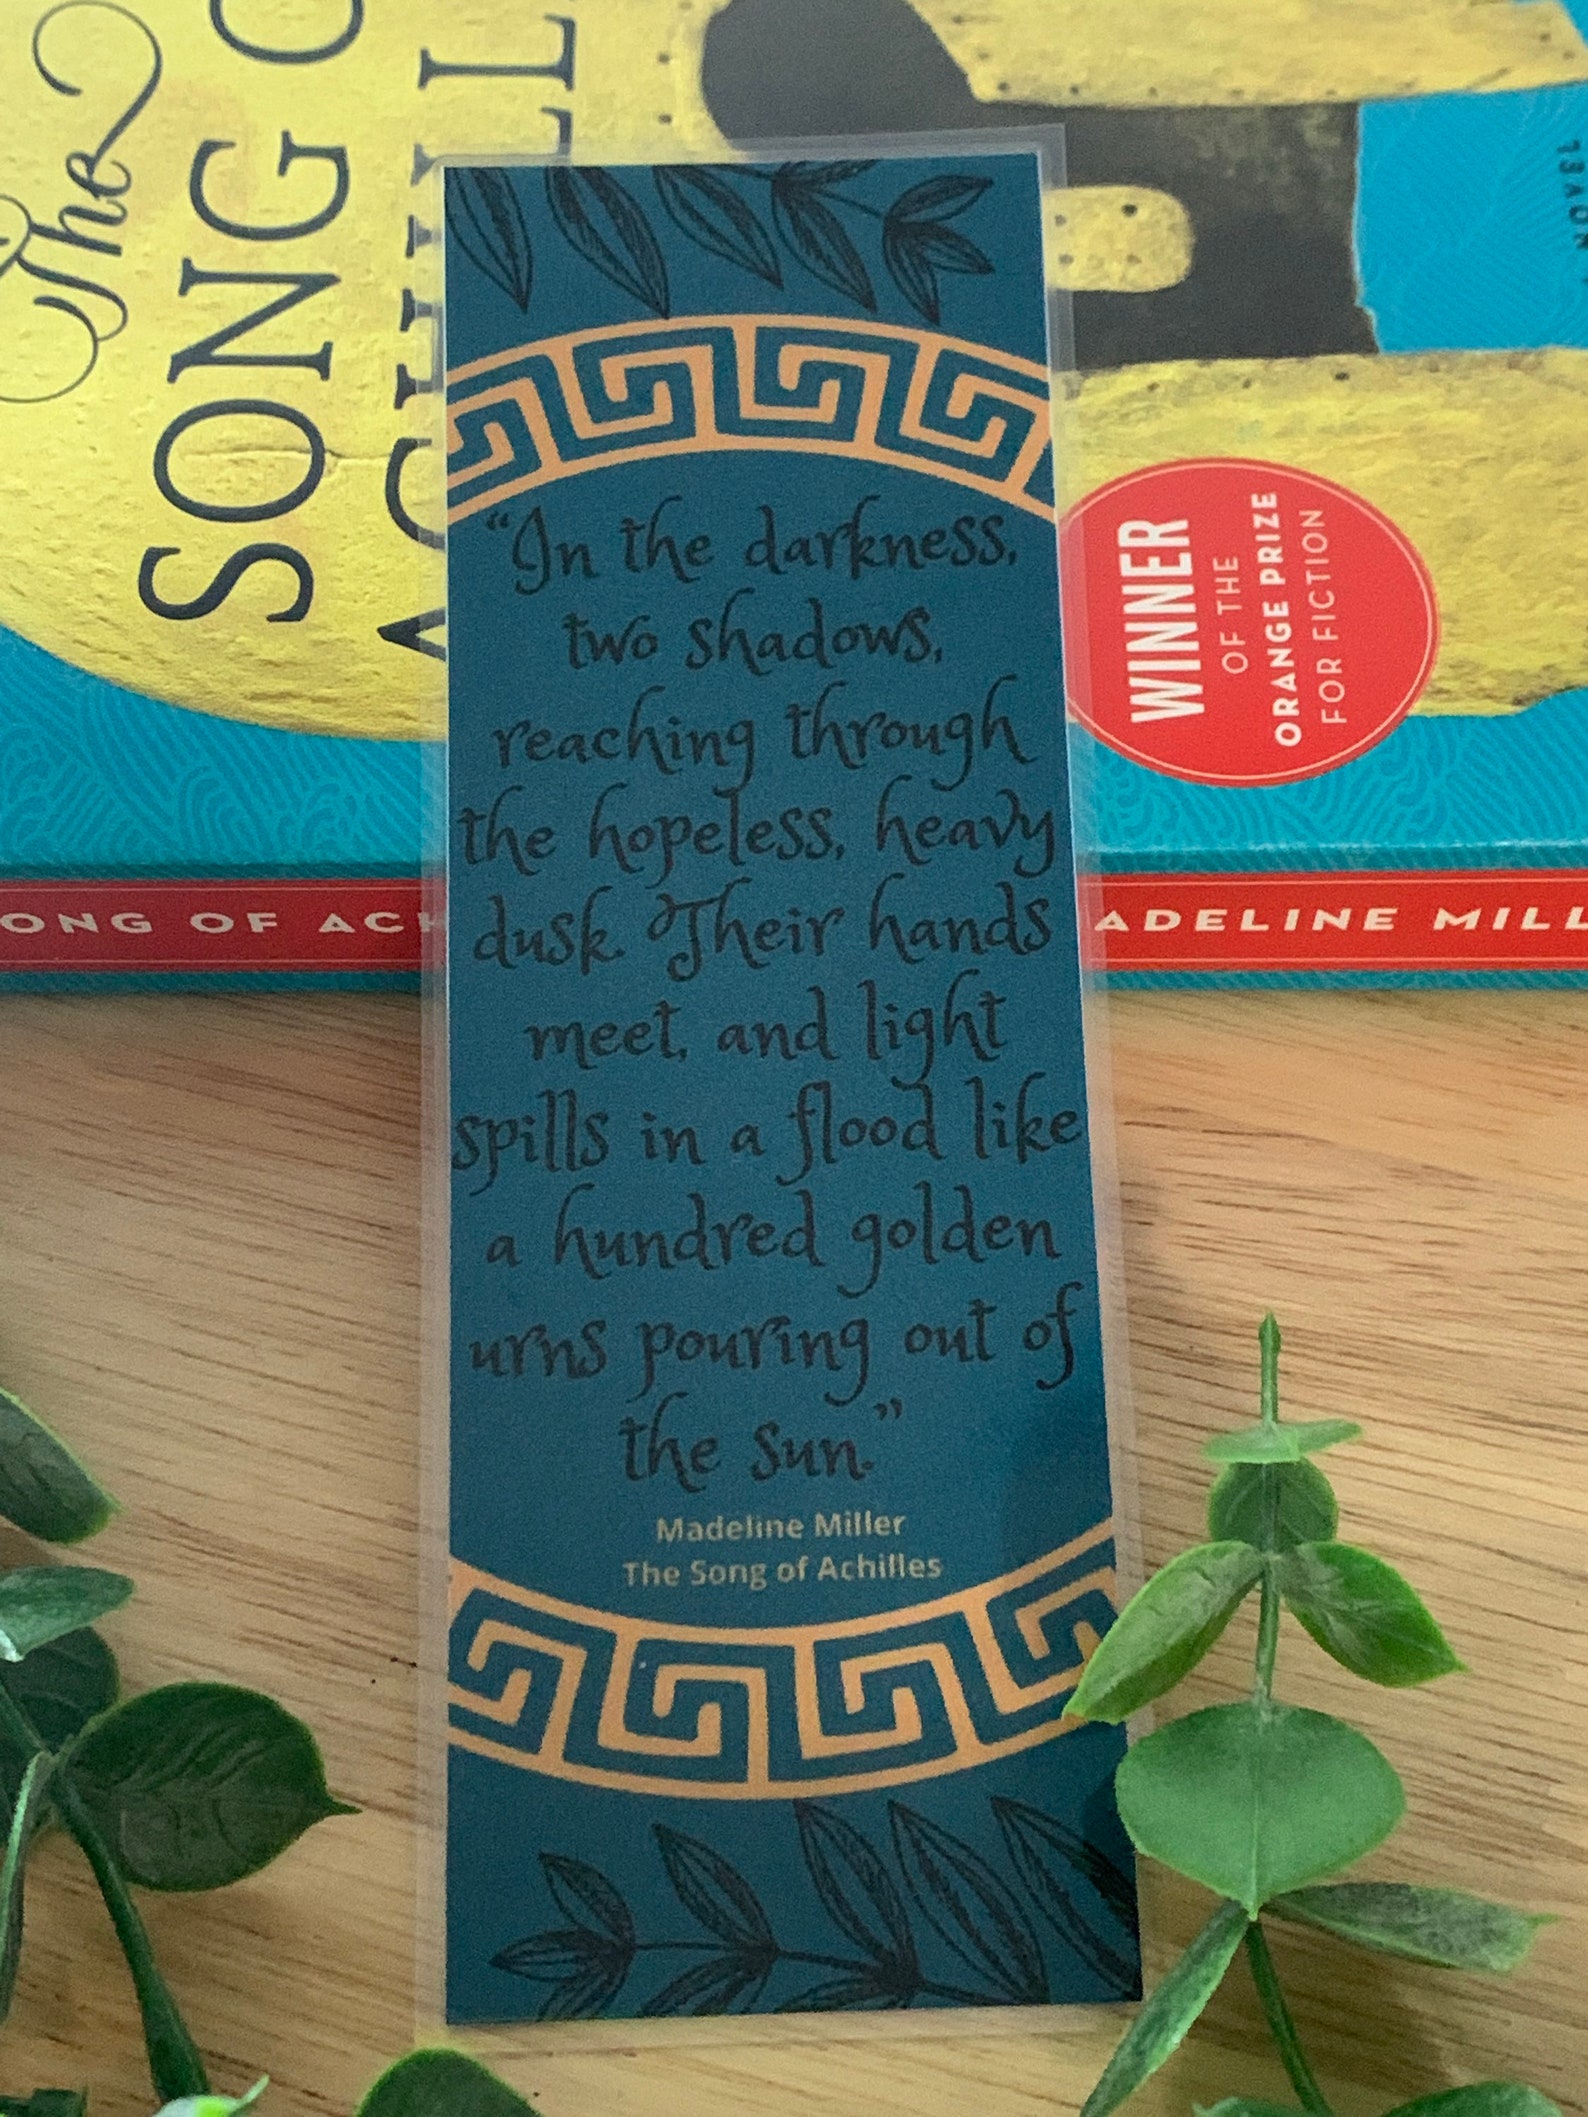 The
SONG O
ACHILL
WINNER
OF THE
ORANGE PRIZE
FOR FICTION
ONG OF ACH
ADELINE MILL
“In the darkness,
two shadows,
reaching through
the hopeless, heavy
dusk. Their hands
meet, and light
spills in a flood like
a hundred golden
urns pouring out of
the sun.”
Madeline Miller
The Song of Achilles